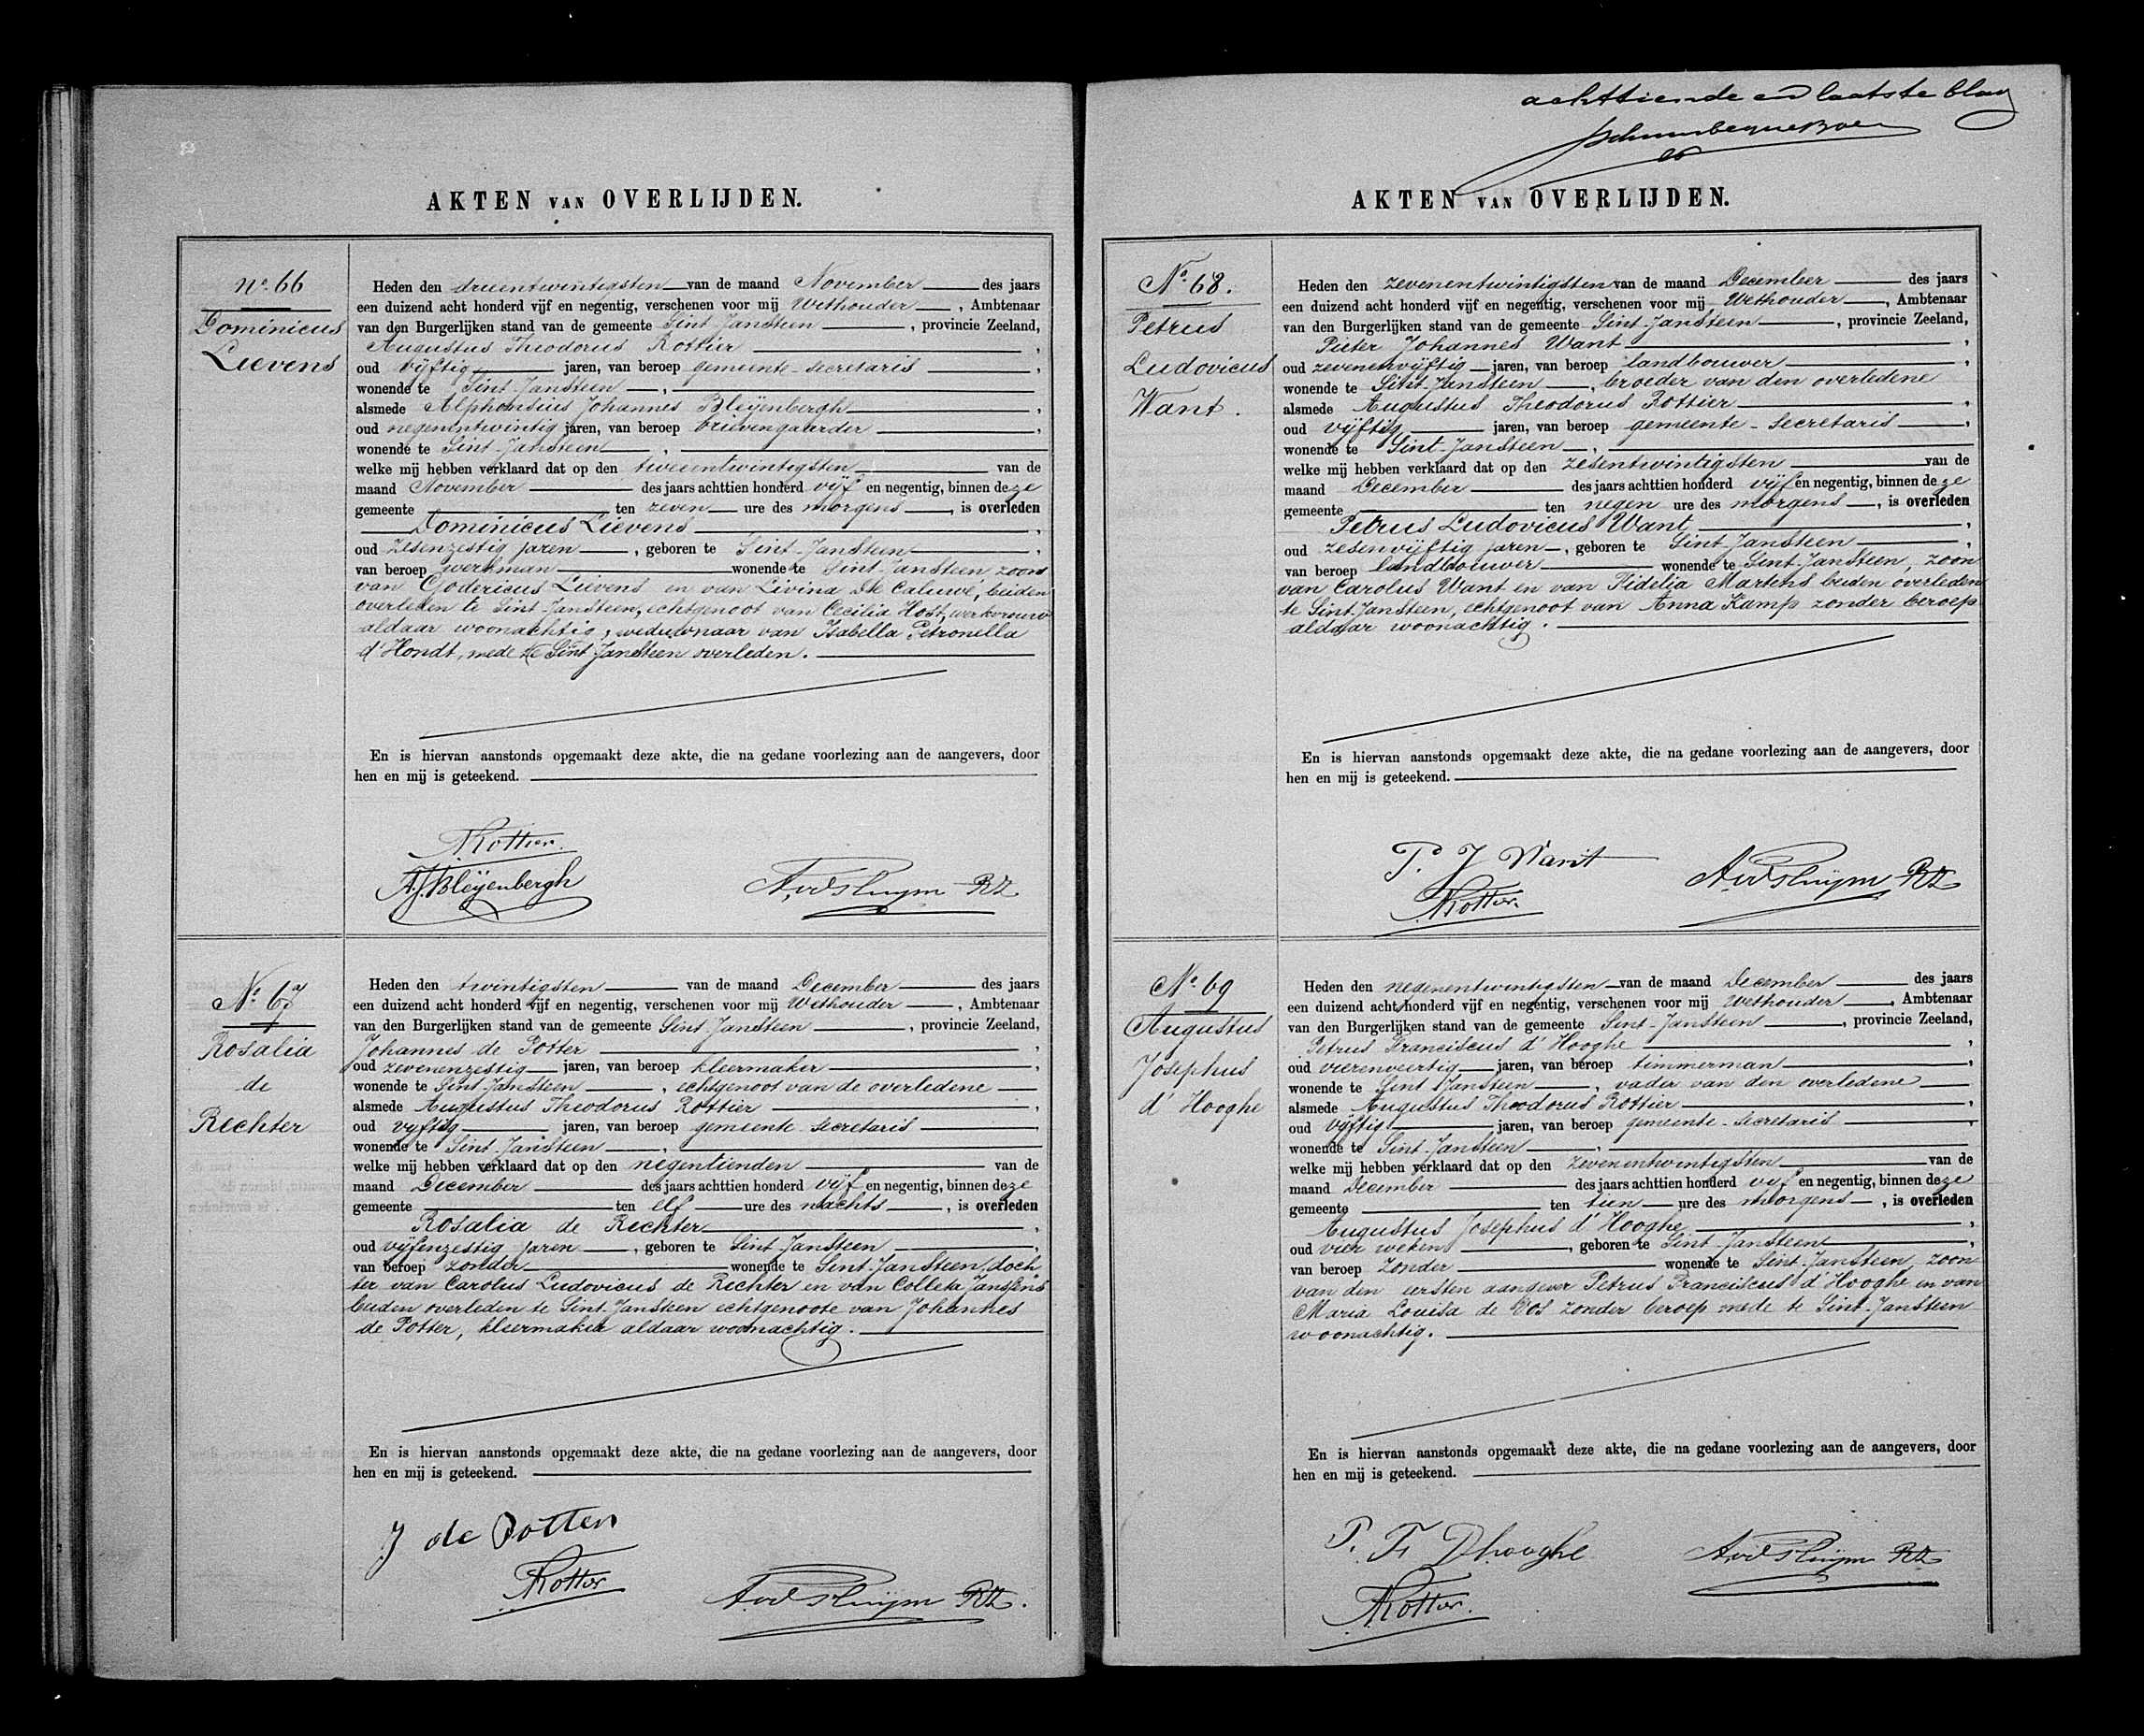 AKTEN VAN OVERLIJDEN.
Nº 66
Dominicus
Lievens
Heden den drieentwintigsten van de maand November des jaars
een duizend acht honderd vijf en negentig, verschenen voor mij Wethouder, Ambtenaar
van den Burgerlijken stand van de gemeente Sint Jansteen, provincie Zeeland,
Augustus Theodorus Rottier,
oud vijftig jaren, van beroep gemeente-secretaris,
wonende te Sint-Jansteen,
alsmede Alphonsius Johannes Bleijenbergh,
oud negenentwintig jaren, van beroep brievengaarder,
wonende te Sint-Jansteen,
welke mij hebben verklaard dat op den tweeentwintigsten van de
maand November des jaars achttien honderd vijf en negentig, binnen deze
gemeente ten zeven ure des morgens, is overleden
Dominicus Lievens,
oud zesenzestig jaren, geboren te Sint-Jansteen,
van beroep werkman wonende te Sint-Jansteen, zoon
van Godericus Lievens en van Livina De Caluwé, beiden
overleden te Sint Jansteen, echtgenoot van Cecilia Host, werkvrouw
aldaar woonachtig, weduwnaar van Isabella Petronella
d'Hondt, mede te Sint Jansteen overleden.
En is hiervan aanstonds opgemaakt deze akte, die na gedane voorlezing aan de aangevers, door
hen en mij is geteekend.
ARottier.
A.J.Bleijenbergh
Nº 67
Rosalia
de
Rechter
Heden den twintigsten van de maand December des jaars
een duizend acht honderd vijf en negentig, verschenen voor mij Wethouder, Ambtenaar
van den Burgerlijken stand van de gemeente Sint Jansteen, provincie Zeeland,
Johannes de Potter,
oud zevenenzestig jaren, van beroep kleermaker,
wonende te Sint-Jansteen, echtgenoot van de overledene
alsmede Augustus Theodorus Rottier,
oud vijftig jaren, van beroep gemeente-secretaris,
wonende te Sint-Jansteen,
welke mij hebben verklaard dat op den negentienden van de
maand December des jaars achttien honderd vijf en negentig, binnen deze
gemeente ten elf ure des nachts, is overleden
Rosalia de Rechter,
oud vijfenzestig jaren, geboren te Sint Jansteen,
van beroep zonder wonende te Sint-Jansteen, doch
ter van Carolus Ludovicus de Rechter en van Colleta Janssens
beiden overleden te Sint-Jansteen echtgenoote van Johannes
de Potter, kleermaker aldaar woonachtig.
En is hiervan aanstonds opgemaakt deze akte, die na gedane voorlezing aan de aangevers, door
hen en mij is geteekend.
J de Potter
ARottier
achttiende en laatste blad
AKTEN VAN OVERLIJDEN.
Nº 68.
Petrus
Ludovicus
Want.
Heden den zevenentwintigsten van de maand December des jaars
een duizend acht honderd vijf en negentig, verschenen voor mij Wethouder, Ambtenaar
van den Burgerlijken stand van de gemeente Sint-Jansteen, provincie Zeeland,
Pieter Johannes Want,
oud zevenenvijftig jaren, van beroep landbouwer,
wonende te Sint-Jansteen, broeder van den overledene
alsmede Augustus Theodorus Rottier,
oud vijftig jaren, van beroep gemeente-secretaris,
wonende te Sint-Jansteen,
welke mij hebben verklaard dat op den zesentwintigsten van de
maand December des jaars achttien honderd vijf en negentig, binnen deze
gemeente ten negen ure des morgens, is overleden
Petrus Ludovicus Want,
oud zesenvijftig jaren, geboren te Sint Jansteen,
van beroep landbouwer wonende te Sint-Jansteen, zoon
van Carolus Want en van Fidelia Martens beiden overleden
te Sint Jansteen, echtgenoot van Anna Kamp zonder beroep
aldaar woonachtig.
En is hiervan aanstonds opgemaakt deze akte, die na gedane voorlezing aan de aangevers, door
hen en mij is geteekend.
P. J Want
ARottier.
Nº 69
Augustus
Josephus
d'Hooghe
Heden den negenentwintigsten van de maand December des jaars
een duizend acht honderd vijf en negentig, verschenen voor mij Wethouder, Ambtenaar
van den Burgerlijken stand van de gemeente Sint-Jansteen, provincie Zeeland,
Petrus Franciscus d'Hooghe,
oud vierenveertig jaren, van beroep timmerman,
wonende te Sint Jansteen, vader van den overledene
alsmede Augustus Theodorus Rottier,
oud vijftig jaren, van beroep gemeente-secretaris,
wonende te Sint-Jansteen,
welke mij hebben verklaard dat op den zevenentwintigsten van de
maand December des jaars achttien honderd vijf en negentig, binnen deze
gemeente ten tien ure des morgens, is overleden
Augustus Josephus d'Hooghe,
oud vier weken, geboren te Sint Jansteen,
van beroep zonder wonende te Sint-Jansteen, zoon
van den eersten aangever Petrus Franciscus d'Hooghe en van
Maria Louisa de Vos zonder beroep mede te Sint-Jansteen
woonachtig.
En is hiervan aanstonds opgemaakt deze akte, die na gedane voorlezing aan de aangevers, door
hen en mij is geteekend.
P. F Dhooghe
ARottier.